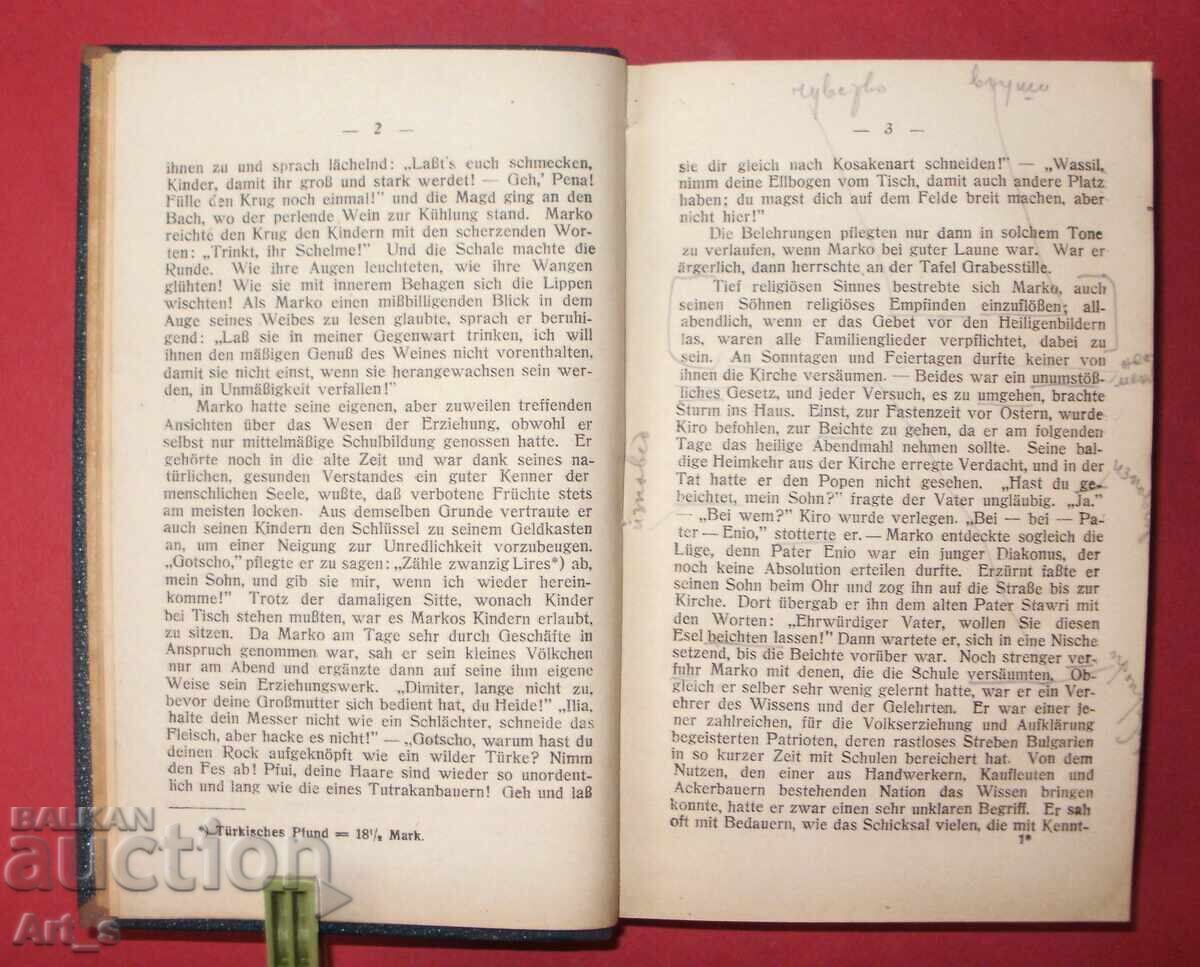 — 2 —
ihnen zu und sprach lächelnd: „Laßt's euch schmecken,
Kinder, damit ihr groß und stark werdet! — Geh,' Pena!
Fülle den Krug noch einmal!" und die Magd ging an den
Bach, wo der perlende Wein zur Kühlung stand. Marko
reichte den Krug den Kindern mit den scherzenden Wor-
ten: „Trinkt, ihr Schelme!" Und die Schale machte die
Runde. Wie ihre Augen leuchteten, wie ihre Wangen
glühten! Wie sie mit innerem Behagen sich die Lippen
wischten! Als Marko einen mißbilligenden Blick in dem
Auge seines Weibes zu lesen glaubte, sprach er beruhi-
gend: „Laß sie in meiner Gegenwart trinken, ich will
ihnen den mäßigen Genuß des Weines nicht vorenthalten,
damit sie nicht einst, wenn sie herangewachsen sein wer-
den, in Unmäßigkeit verfallen!"
Marko hatte seine eigenen, aber zuweilen treffenden
Ansichten über das Wesen der Erziehung, obwohl er
selbst nur mittelmäßige Schulbildung genossen hatte. Er
gehörte noch in die alte Zeit und war dank seines na-
türlichen, gesunden Verstandes ein guter Kenner der
menschlichen Seele, wußte, daß verbotene Früchte stets
am meisten locken. Aus demselben Grunde vertraute er
auch seinen Kindern den Schlüssel zu seinem Geldkasten
an, um einer Neigung zur Unredlichkeit vorzubeugen.
„Gotscho," pflegte er zu sagen: „Zähle zwanzig Lires*) ab,
mein Sohn, und gib sie mir, wenn ich wieder herein-
komme!" Trotz der damaligen Sitte, wonach Kinder
bei Tisch stehen mußten, war es Markos Kindern erlaubt,
zu sitzen. Da Marko am Tage sehr durch Geschäfte in
Anspruch genommen war, sah er sein kleines Völkchen
nur am Abend und ergänzte dann auf seine ihm eigene
Weise sein Erziehungswerk. „Dimiter, lange nicht zu,
bevor deine Großmutter sich bedient hat, du Heide!" „Ilia,
halte dein Messer nicht wie ein Schlächter, schneide das
Fleisch, aber hacke es nicht!" — „Gotscho, warum hast du
deinen Rock aufgeknöpft wie ein wilder Türke? Nimm
den Fes ab! Pfui, deine Haare sind wieder so unordent-
lich und lang wie die eines Tutrakanbauern! Geh und laß
*) Türkisches Pfund = 18½ Mark.
чувство
внуши
— 3 —
sie dir gleich nach Kosakenart schneiden!" — „Wassil,
nimm deine Ellbogen vom Tisch, damit auch andere Platz
haben; du magst dich auf dem Felde breit machen, aber
nicht hier!"
Die Belehrungen pflegten nur dann in solchem Tone
zu verlaufen, wenn Marko bei guter Laune war. War er
ärgerlich, dann herrschte an der Tafel Grabesstille.
Tief religiösen Sinnes bestrebte sich Marko, auch
seinen Söhnen religiöses Empfinden einzuflößen; all-
abendlich, wenn er das Gebet vor den Heiligenbildern
las, waren alle Familienglieder verpflichtet, dabei zu
sein. An Sonntagen und Feiertagen durfte keiner von
ihnen die Kirche versäumen. — Beides war ein unumstöß-
liches Gesetz, und jeder Versuch, es zu umgehen, brachte
Sturm ins Haus. Einst, zur Fastenzeit vor Ostern, wurde
Kiro befohlen, zur Beichte zu gehen, da er am folgenden
Tage das heilige Abendmahl nehmen sollte. Seine bal-
dige Heimkehr aus der Kirche erregte Verdacht, und in der
Tat hatte er den Popen nicht gesehen. „Hast du ge-
beichtet, mein Sohn?" fragte der Vater ungläubig. „Ja."
— „Bei wem?" Kiro wurde verlegen. „Bei — bei — Pa-
ter — Enio," stotterte er. — Marko entdeckte sogleich die
Lüge, denn Pater Enio war ein junger Diakonus, der
noch keine Absolution erteilen durfte. Erzürnt faßte er
seinen Sohn beim Ohr und zog ihn auf die Straße bis zur
Kirche. Dort übergab er ihn dem alten Pater Stawri mit
den Worten: „Ehrwürdiger Vater, wollen Sie diesen
Esel beichten lassen!" Dann wartete er, sich in eine Nische
setzend, bis die Beichte vorüber war. Noch strenger ver-
fuhr Marko mit denen, die die Schule versäumten. Ob-
gleich er selber sehr wenig gelernt hatte, war er ein Ver-
ehrer des Wissens und der Gelehrten. Er war einer je-
ner zahlreichen, für die Volkserziehung und Aufklärung
begeisterten Patrioten, deren rastloses Streben Bulgarien
in so kurzer Zeit mit Schulen bereichert hat. Von dem
Nutzen, den einer aus Handwerkern, Kaufleuten und
Ackerbauern bestehenden Nation das Wissen bringen
konnte, hatte er zwar einen sehr unklaren Begriff. Er sah
oft mit Bedauern, wie das Schicksal vielen, die mit Kennt-
1*
изповед
BALKAN
auction
Art_s